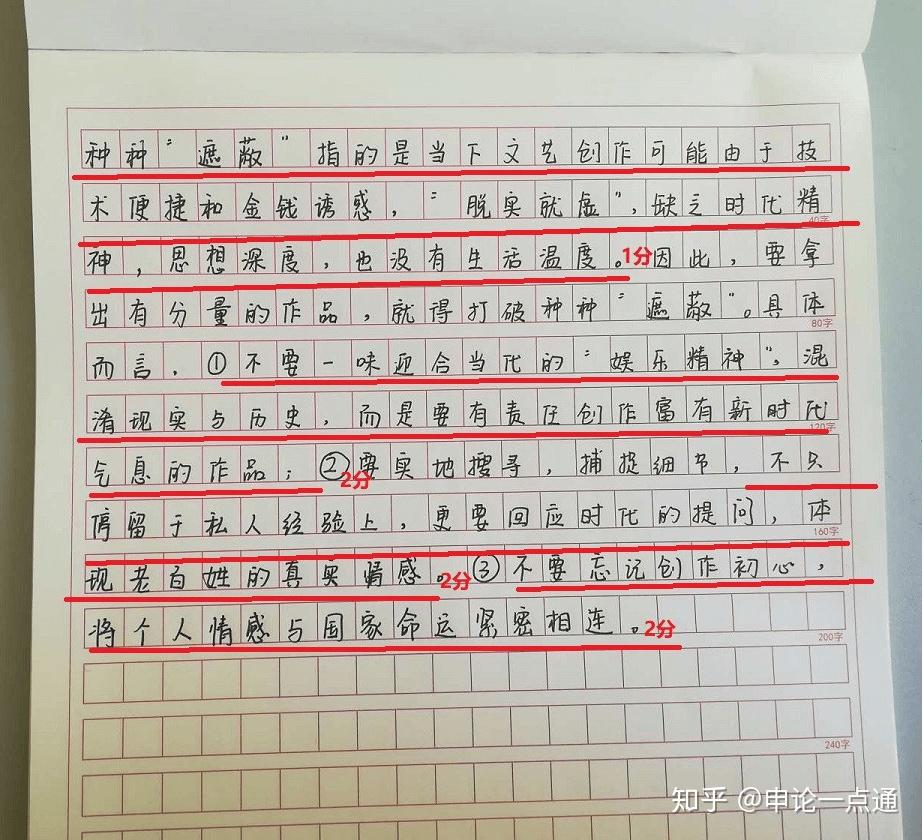 种种“遮蔽”指的是当下文艺创作可能由于技
术便捷和金钱诱惑，“脱实就虚”，缺乏时代精
40字
神，思想深度，也没有生活温度。1分因此，要拿
出有分量的作品，就得打破种种“遮蔽”。具体
80字
而言，①不要一味迎合当代的“娱乐精神”，混
淆现实与历史，而是要有责任创作富有新时代
120字
气息的作品；②要实地搜寻，捕捉细节，不只
2分
停留于私人经验上，更要回应时代的提问，体
160字
现老百姓的真实情感。2分③不要忘记创作初心，
将个人情感与国家命运紧密相连。2分
200字
240字
知乎 @申论一点通